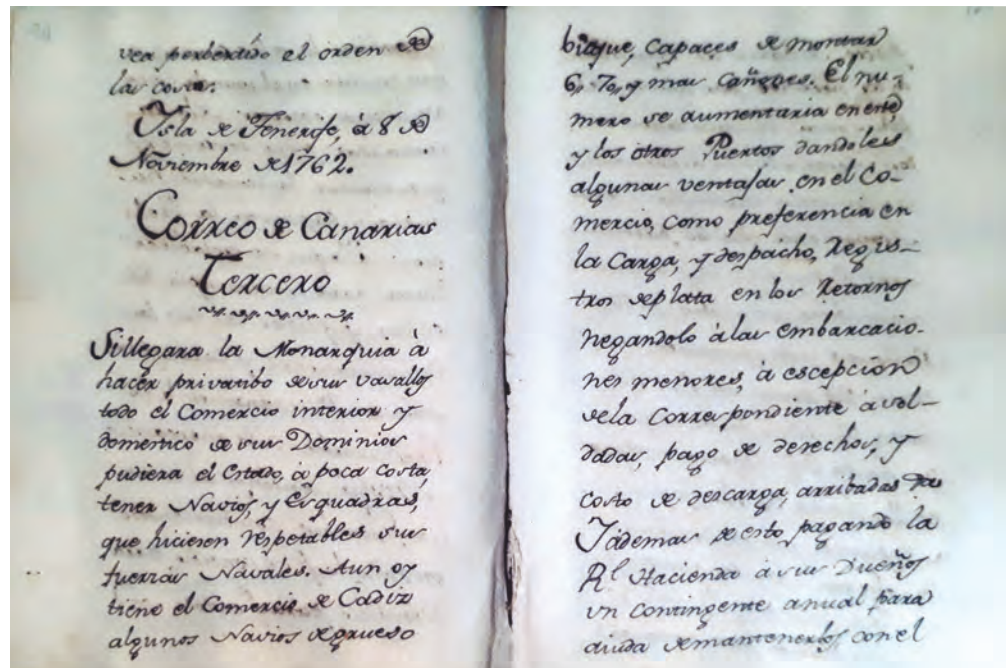 vea perbertido el orden de
las cosas.
Ysla de Tenerife, à 8 de
Noviembre de 1762.
Correo de Canarias
Tercero
Sillegara la Monarquia à
hacer pribatibo desus vasallos
todo el Comercio interior y
domestico de sus Dominios
pudiera el Estado, à poca costa,
tener Navios, y Esquadras,
que hiciesen respetables sus
fuerzas Navales. Aun oy
tiene el Comercio de Cadiz
algunos Navios degrueso
buque, Capaces de montar
60, 70, y mas Cañones. El nu-
mero se aumentaria en este,
y los otros Puertos dandoles
algunas ventajas en el Co-
mercio, como preferencia en
la Carga, y despacho, Regis-
tros deplata en los Retornos
negandolo àlas embarcacio-
nes menores, à escepcion
dela Correspondiente à sol-
dadas, pago de derechos, y
costo de descarga, arribadas &a
Yàdemas de esto pagando la
Rl Hacienda à sus Dueños
vn Contingente anual para
aiuda demantenerlos, con el